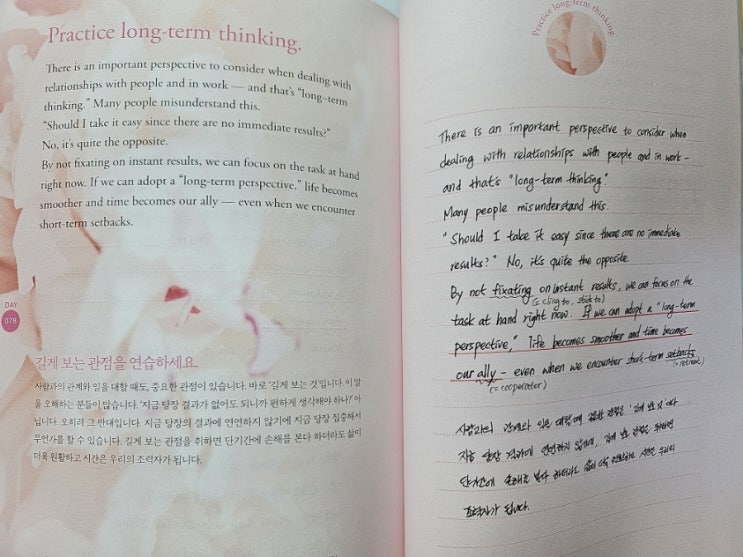 Practice long-term thinking.
There is an important perspective to consider when dealing with
relationships with people and in work — and that's "long-term
thinking." Many people misunderstand this.
"Should I take it easy since there are no immediate results?"
No, it's quite the opposite.
By not fixating on instant results, we can focus on the task at hand
right now. If we can adopt a "long-term perspective," life becomes
smoother and time becomes our ally — even when we encounter
short-term setbacks.
DAY
078
길게 보는 관점을 연습하세요.
사람과의 관계와 일을 대할 때도, 중요한 관점이 있습니다. 바로 '길게 보는 것'입니다. 이 말
을 오해하는 분들이 많습니다. '지금 당장 결과가 없어도 되니까 편하게 생각해야 하나?' 아
닙니다. 오히려 그 반대입니다. 지금 당장의 결과에 연연하지 않기에 지금 당장 집중해서
무언가를 할 수 있습니다. 길게 보는 관점을 취하면 단기간에 손해를 본다 하더라도 삶이
더욱 원활하고 시간은 우리의 조력자가 됩니다.
Practice long-term thinking.
There is an important perspective to consider when
dealing with relationships with people and in work -
and that's "long-term thinking."
Many people misunderstand this.
"Should I take it easy since there are no immediate
results?" No, it's quite the opposite.
By not fixating on instant results, we can focus on the
(= cling to, stick to)
task at hand right now. If we can adopt a "long-term
perspective," life becomes smoother and time becomes
our ally - even when we encounter short-term setbacks
(= cooperator)
사람과의 관계와 일을 대할 때 중요한 관점은 '길게 보는 것'이다
지금 당장 결과에 연연하지 않으며, 길게 보는 관점을 취하면
단기간에 손해를 본다 하더라도 삶이 더욱 원활하고 시간은 우리의
조력자가 됩니다.